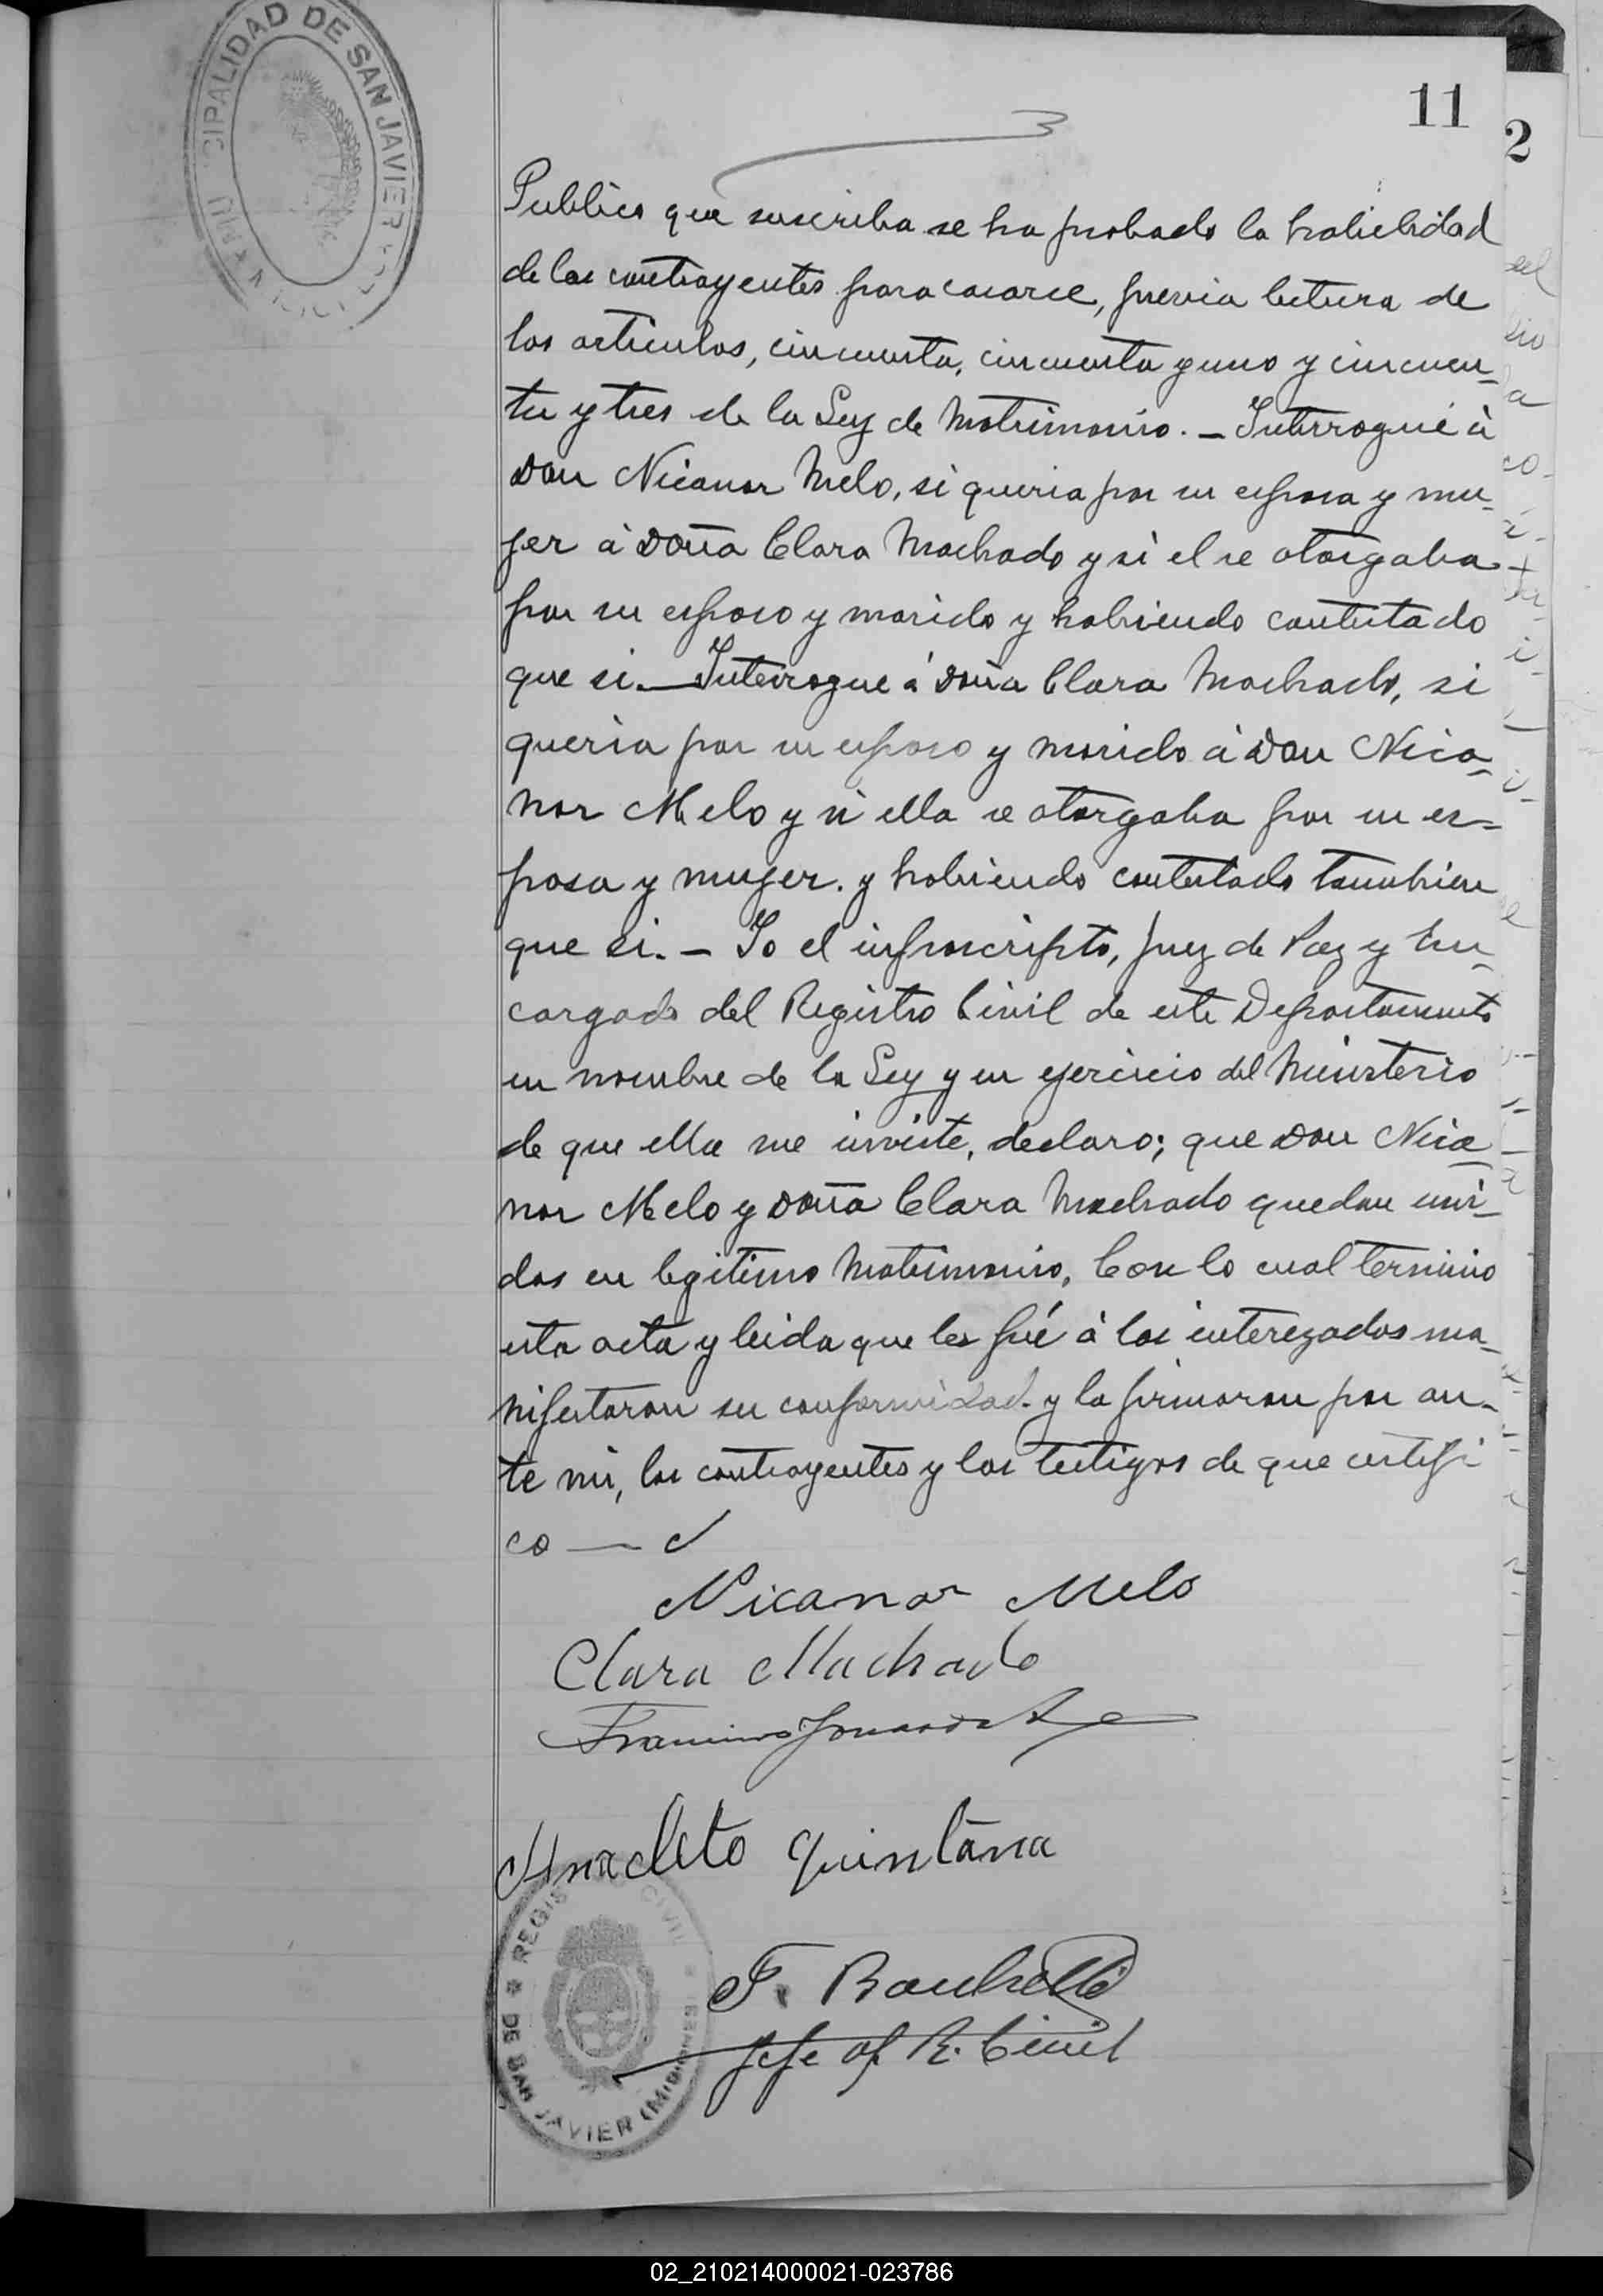 MUNICIPALIDAD DE SAN JAVIER
11
2
Publico que suscriba se ha probado la habilidad
de los contrayentes para casarse, previa letura de
los articulos, cincuenta, cincuenta y uno y cincuen-
ta y tres de la Ley de Matrimonio. - Interrogué à
Don Nicanor Melo, si queria por su esposa y mu-
jer à Doña Clara Machado y si el se otorgaba
por su esposo y marido y habiendo contestado
que si. - Interrogue á Doña Clara Machado, si
queria por su esposo y marido à Don Nica-
nor Melo y si ella se otorgaba por su es-
posa y mujer. y habiendo contestado tambien
que si. - Yo el infrascripto, Juez de Paz y En-
cargado del Registro Civil de este Departamento
en nombre de la Ley y en ejercicio del Ministerio
de que ella me inviste, declaro; que Don Nica-
nor Melo y Doña Clara Machado quedan uni-
dos en legitimo Matrimonio, Con lo cual termino
esta acta y leida que les fué à los interezados ma-
nifestaron su conformidad. y la firmaron por an-
te mi, los contrayentes y los testigos de que certifi
co
Nicanor Melo
Clara Machado
Anacleto Quintana
REGISTRO CIVIL
DE SAN JAVIER (MISIONES)
F.
Jefe of. R. Civil
02_210214000021-023786